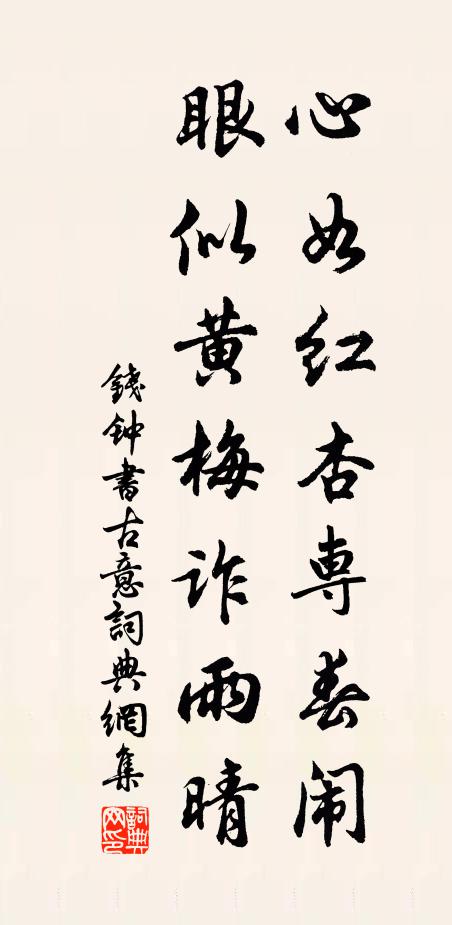 心如红杏専春闹
眼似黄梅诈雨晴
錢钟書古意詞典網集
詞典网印